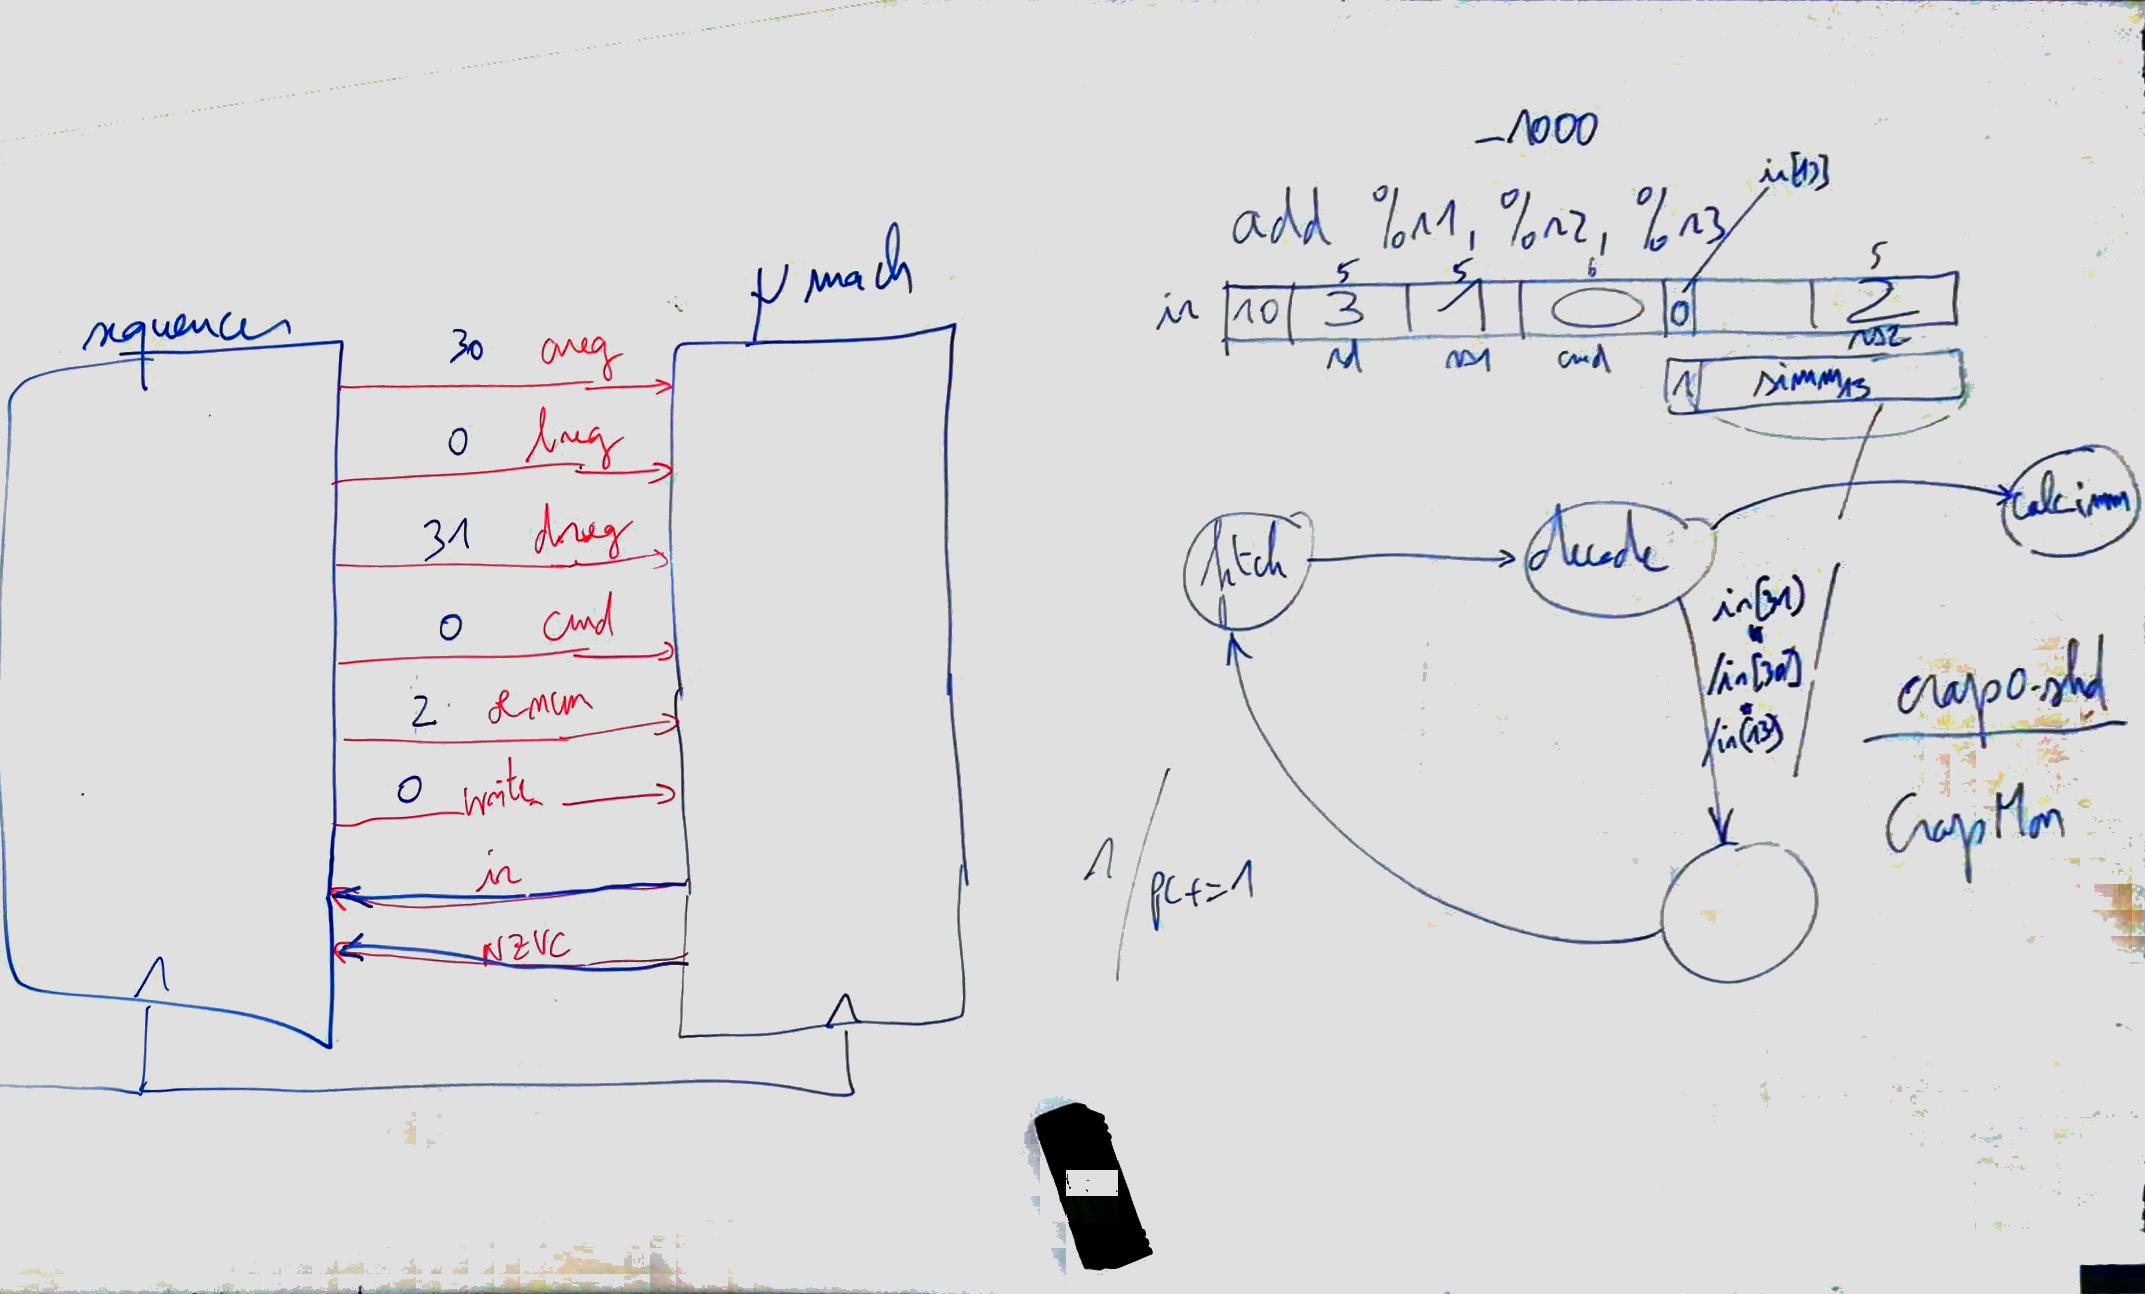 sequenceur
μ mach
30 areg
0 breg
31 dreg
0 cmd
2 oemem
0 write
ir
NZVC
-1000
add %r1, %r2, %r3
ir[13]
5 5 6 5
ir 10 3 1 0 0 2
rd rs1 cmd rs2
1 simm13
fetch
decode
calcimm
ir[31]
*
/ir[30]
*
/ir[13]
1
pc+=1
crap0.shd
CrapMon